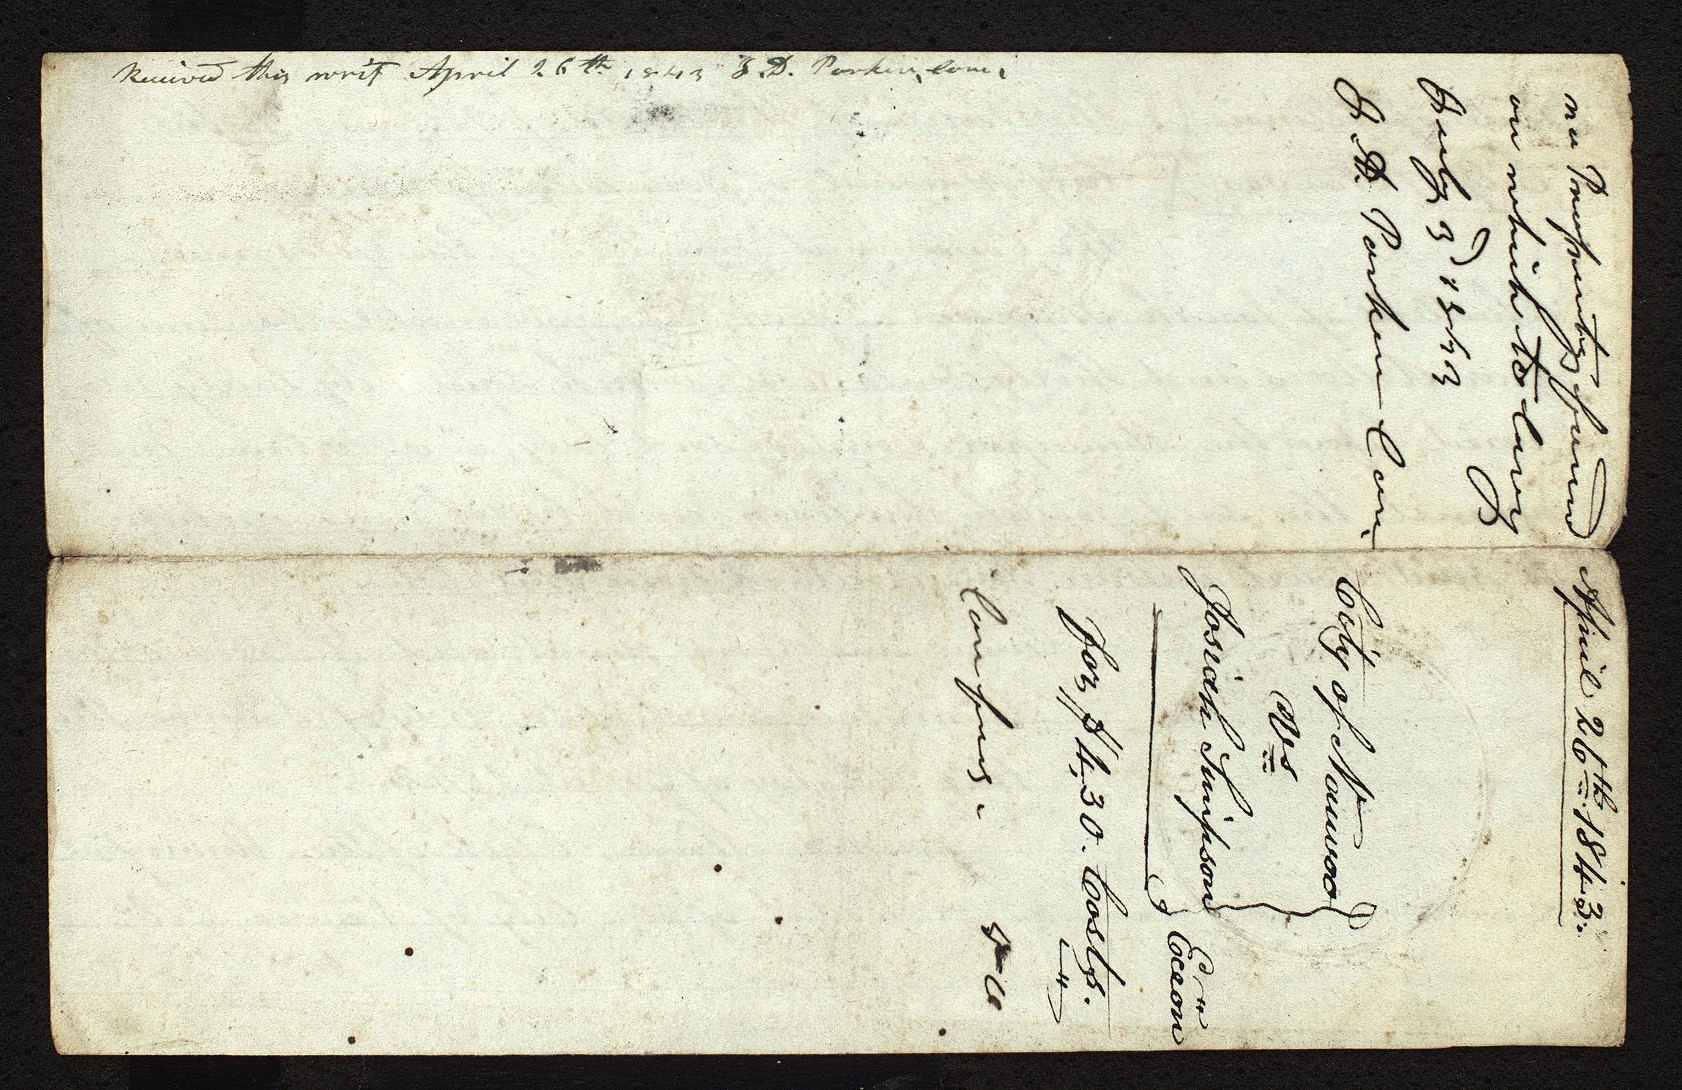 Received this writ April 26th 1843 J. D. Parker, Con.
no Propperty found
on which to Levy
July 3d 1843
J. D. Parker Con.
April 26th 1843.
City of Nauvoo
vs
Josiah Simpson
Exon
for $14,30. Costs.
Con fees